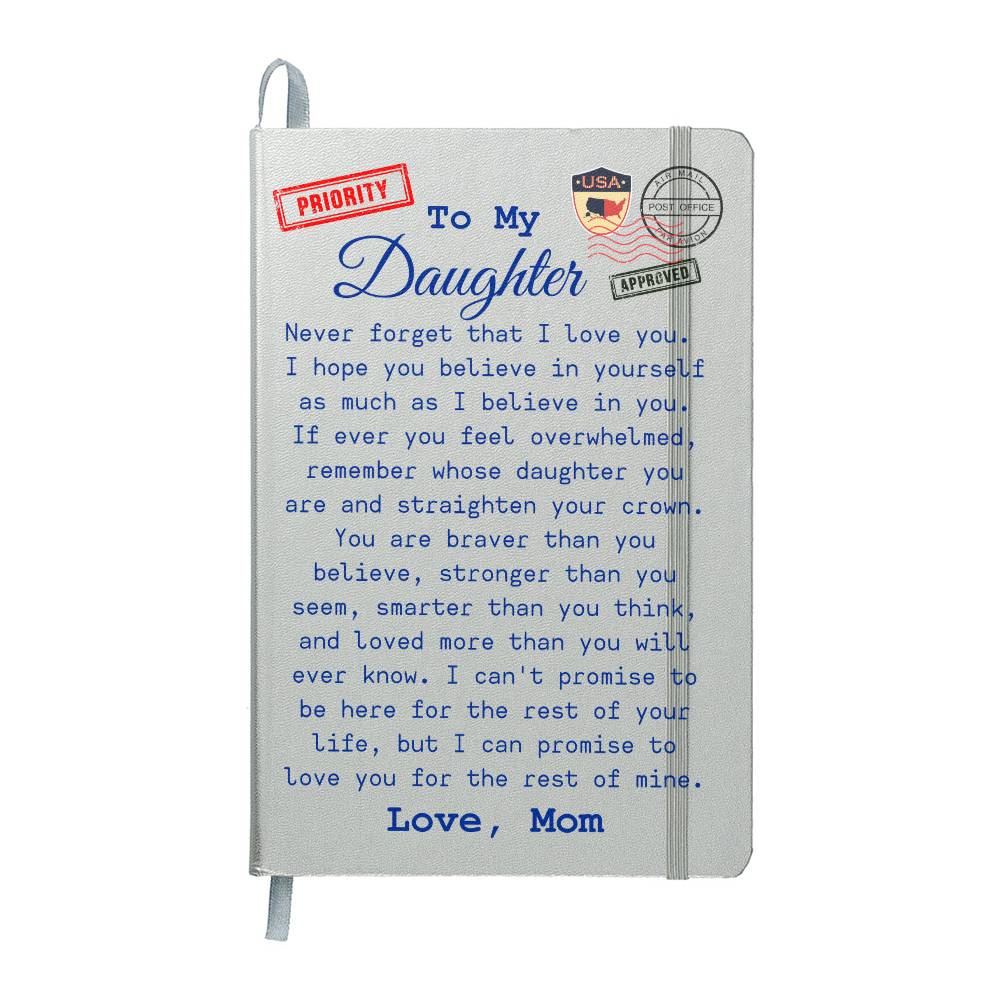 PRIORITY
USA
AIR MAIL
POST OFFICE
PAR AVION
APPROVED
To My
Daughter
Never forget that I love you.
I hope you believe in yourself
as much as I believe in you.
If ever you feel overwhelmed,
remember whose daughter you
are and straighten your crown.
You are braver than you
believe, stronger than you
seem, smarter than you think,
and loved more than you will
ever know. I can't promise to
be here for the rest of your
life, but I can promise to
love you for the rest of mine.
Love, Mom